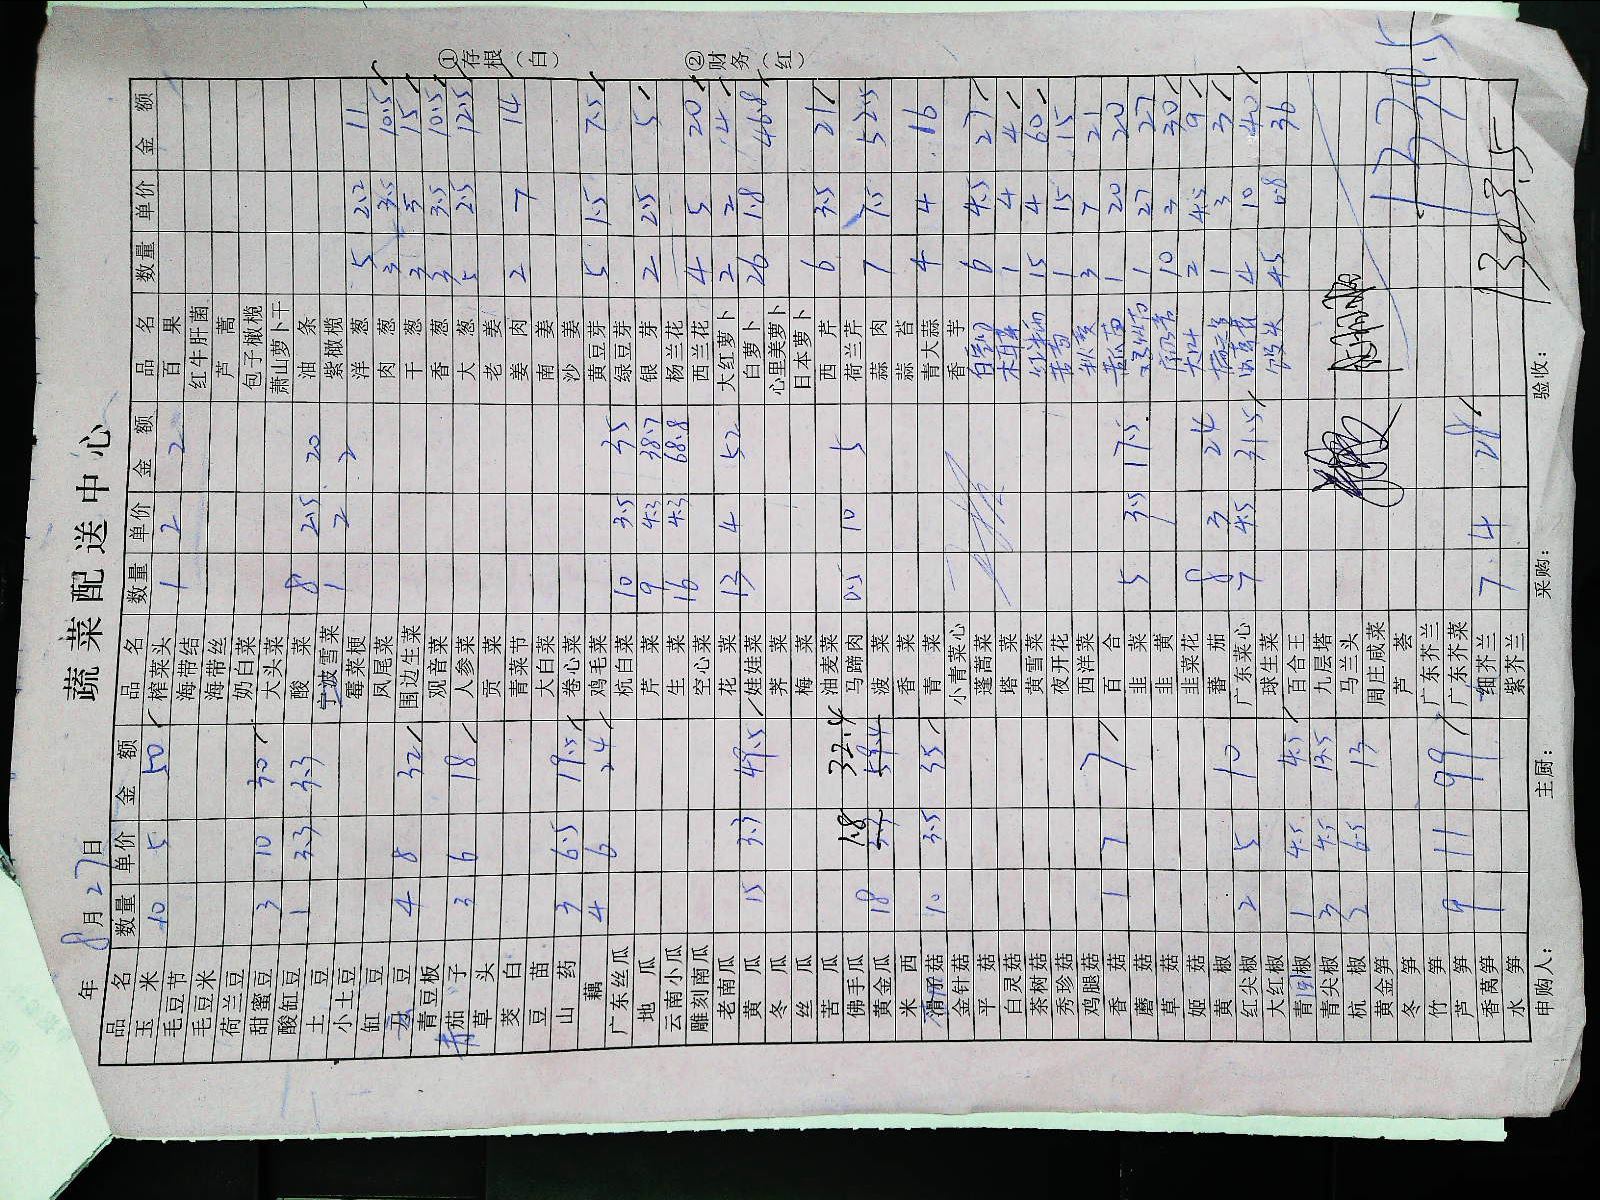 蔬菜配送中心
年 8月27日
品名 数量 单价 金额 品名 数量 单价 金额 品名 数量 单价 金额
玉米 10 5 50 榨菜头 1 2 2 百果
毛豆节 海带结 红牛肝菌
毛豆米 海带丝 芦蒿
荷兰豆 奶白菜 包子橄榄
甜蜜豆 3 10 30 大头菜 萧山萝卜干
酸缸豆 1 3.3 3.3 酸菜 8 2.5 20 油条
土豆 宁波雪菜 1 2 2 紫橄榄
小土豆 莓菜梗 洋葱 5 2.2 11
缸豆 凤尾菜 肉葱 3 3.5 10.5
豆 4 8 32 围边生菜 干葱 3 5 15
青豆板 观音菜 香葱 3 3.5 10.5
茄子 3 6 18 人参菜 大葱 5 2.5 12.5
草头 贡菜 老姜
茭白 青菜节 姜肉 2 7 14
豆苗 大白菜 南姜
山药 3 6.5 19.5 卷心菜 沙姜
藕 4 6 24 鸡毛菜 黄豆芽 5 1.5 7.5
广东丝瓜 杭白菜 10 3.5 35 绿豆芽
地瓜 芹菜 9 4.3 38.7 银芽 2 2.5 5
云南小瓜 生菜 16 4.3 68.8 杨兰花
雕刻南瓜 空心菜 西兰花 4 5 20
老南瓜 花菜 13 4 52 大红萝卜 2 2 4
黄瓜 15 3.3 49.5 娃娃菜 白萝卜 26 1.8 46.8
冬瓜 荠菜 心里美萝卜
丝瓜 梅菜 日本萝卜
苦瓜 油麦菜 西芹 6 3.5 21
佛手瓜 1.8 32.4 马蹄肉 0.5 10 5 荷兰芹
黄金瓜 18 3.3 59.4 菠菜 蒜肉 7 7.5 52.5
米西 香菜 蒜苔
滑子菇 10 3.5 35 青菜 青大蒜 4 4 16
金针菇 小青菜心 香芋
平菇 蓬蒿菜 6 4.5 27
白灵菇 塔菜 木耳菜 1 4 4
茶树菇 黄雪菜 15 4 60
秀珍菇 夜开花 1 15 15
鸡腿菇 西洋菜 秋葵 3 7 21
香菇 1 7 7 百合 1 20 20
蘑菇 韭菜 5 3.5 17.5 1 27 27
草菇 韭黄 10 3 30
姬菇 韭菜花 2 4.5 9
黄椒 蕃茄 8 3 24 1 3 3
红尖椒 2 5 10 广东菜心 7 4.5 31.5 4 10 40
大红椒 球生菜 45 0.8 36
青圆椒 1 4.5 4.5 百合王
青尖椒 3 4.5 13.5 九层塔
杭椒 2 6.5 13 马兰头
黄金笋 周庄咸菜
冬笋 芦荟
竹笋 广东芥兰
芦笋 9 11 99 广东芥菜
香莴笋 细芥兰 7 4 28
水笋 紫芥兰
1330.5
1303.5
申购人： 主厨： 采购： 验收：
①存根（白）
②财务（红）